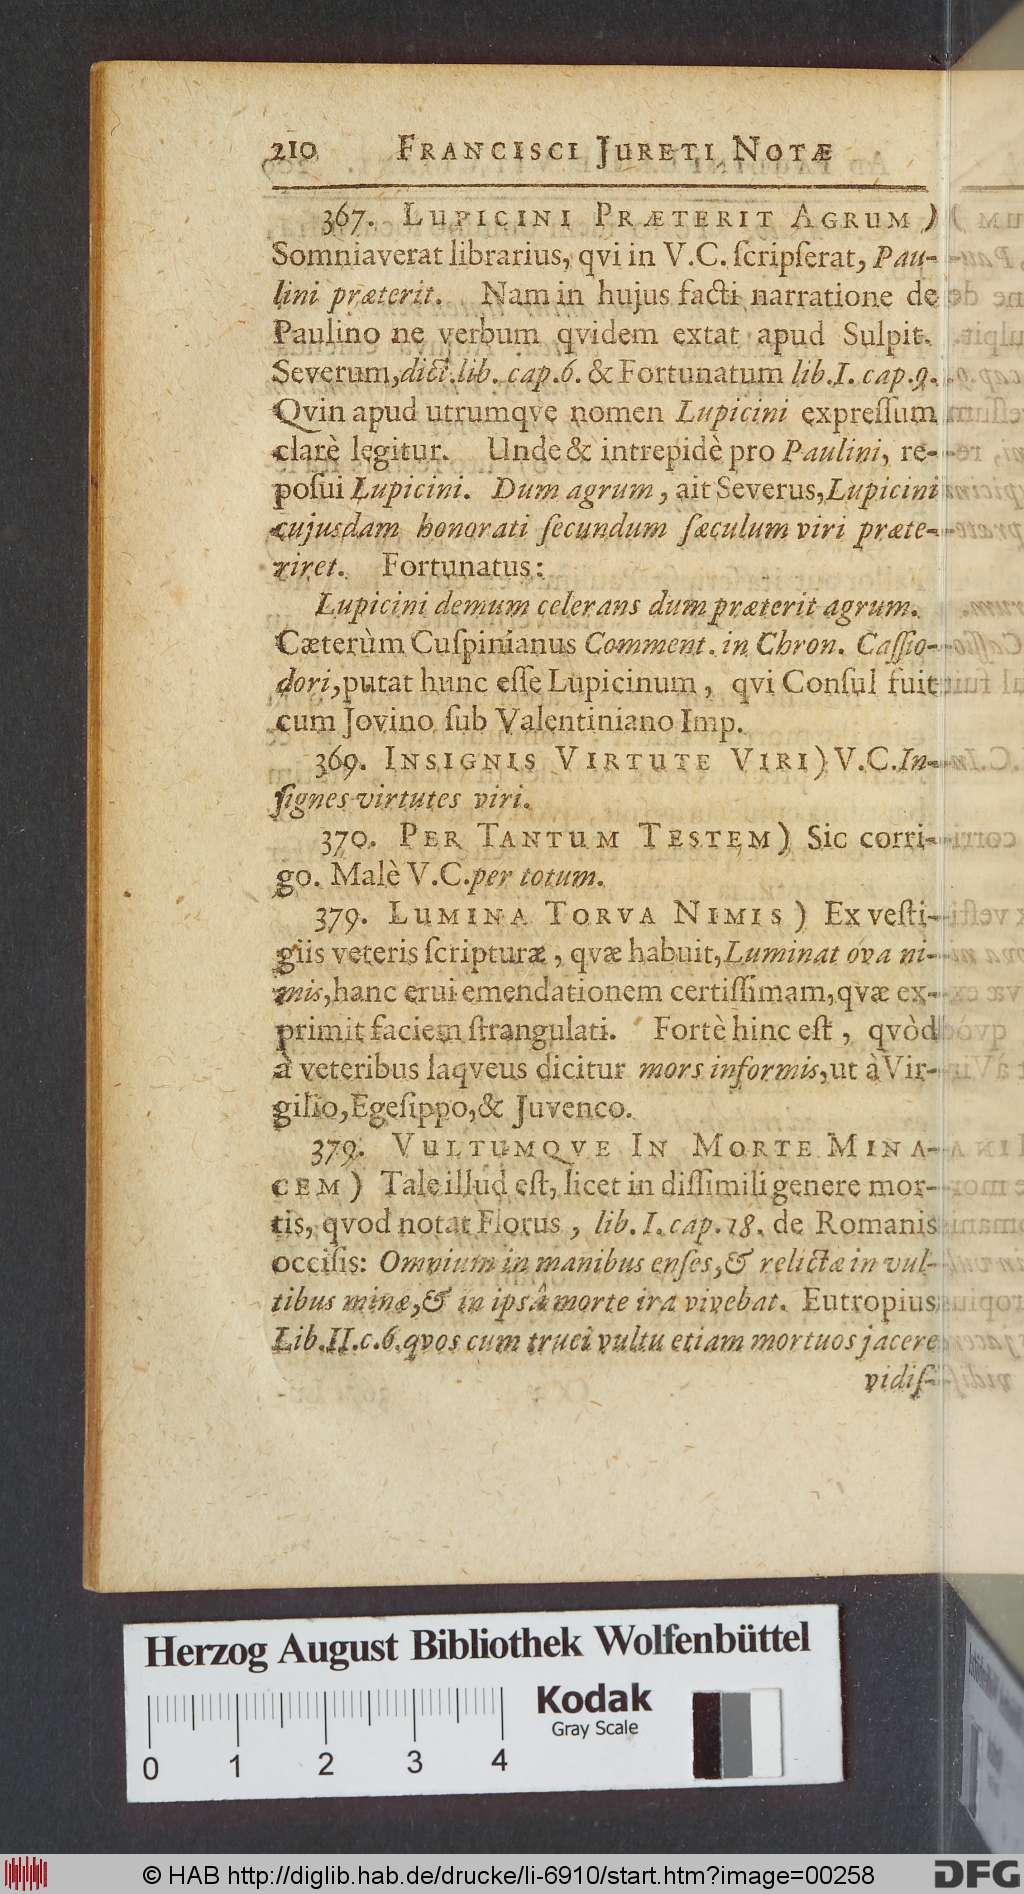 210 FRANCISCI JURETI NOTÆ
367. LUPICINI PRÆTERIT AGRUM)
Somniaverat librarius, qvi in V.C. ſcripſerat, Pau-
lini præterit. Nam in hujus facti narratione de
Paulino ne verbum qvidem extat apud Sulpit.
Severum, dict. lib. cap. 6. & Fortunatum lib. I. cap. 9.
Qvin apud utrumqve nomen Lupicini expreſſum
clarè legitur. Unde & intrepidè pro Paulini, re-
poſui Lupicini. Dum agrum, ait Severus, Lupicini
cujusdam honorati ſecundum ſæculum viri præte-
riret. Fortunatus:
Lupicini demum celerans dum præterit agrum.
Cæterùm Cuſpinianus Comment. in Chron. Caſſio-
dori, putat hunc eſſe Lupicinum, qvi Conſul fuit
cum Jovino ſub Valentiniano Imp.
369. INSIGNIS VIRTUTE VIRI) V.C. In-
ſignes virtutes viri.
370. PER TANTUM TESTEM) Sic corri-
go. Malè V.C. per totum.
379. LUMINA TORVA NIMIS) Ex veſti-
giis veteris ſcripturæ, qvæ habuit, Luminat ova ni-
mis, hanc erui emendationem certiſſimam, qvæ ex-
primit faciem ſtrangulati. Fortè hinc eſt, qvòd
à veteribus laqveus dicitur mors informis, ut à Vir-
gilio, Egeſippo, & Juvenco.
379. VULTUMQVE IN MORTE MINA-
CEM) Tale illud eſt, licet in diſſimili genere mor-
tis, qvod notat Florus, lib. I. cap. 18. de Romanis
occiſis: Omnium in manibus enſes, & relictæ in vul-
tibus minæ, & in ipsâ morte ira vivebat. Eutropius
Lib. II. c. 6. qvos cum truci vultu etiam mortuos jacere
vidiſ-
Herzog August Bibliothek Wolfenbüttel
Kodak
Gray Scale
0 1 2 3 4
© HAB http://diglib.hab.de/drucke/li-6910/start.htm?image=00258
DFG